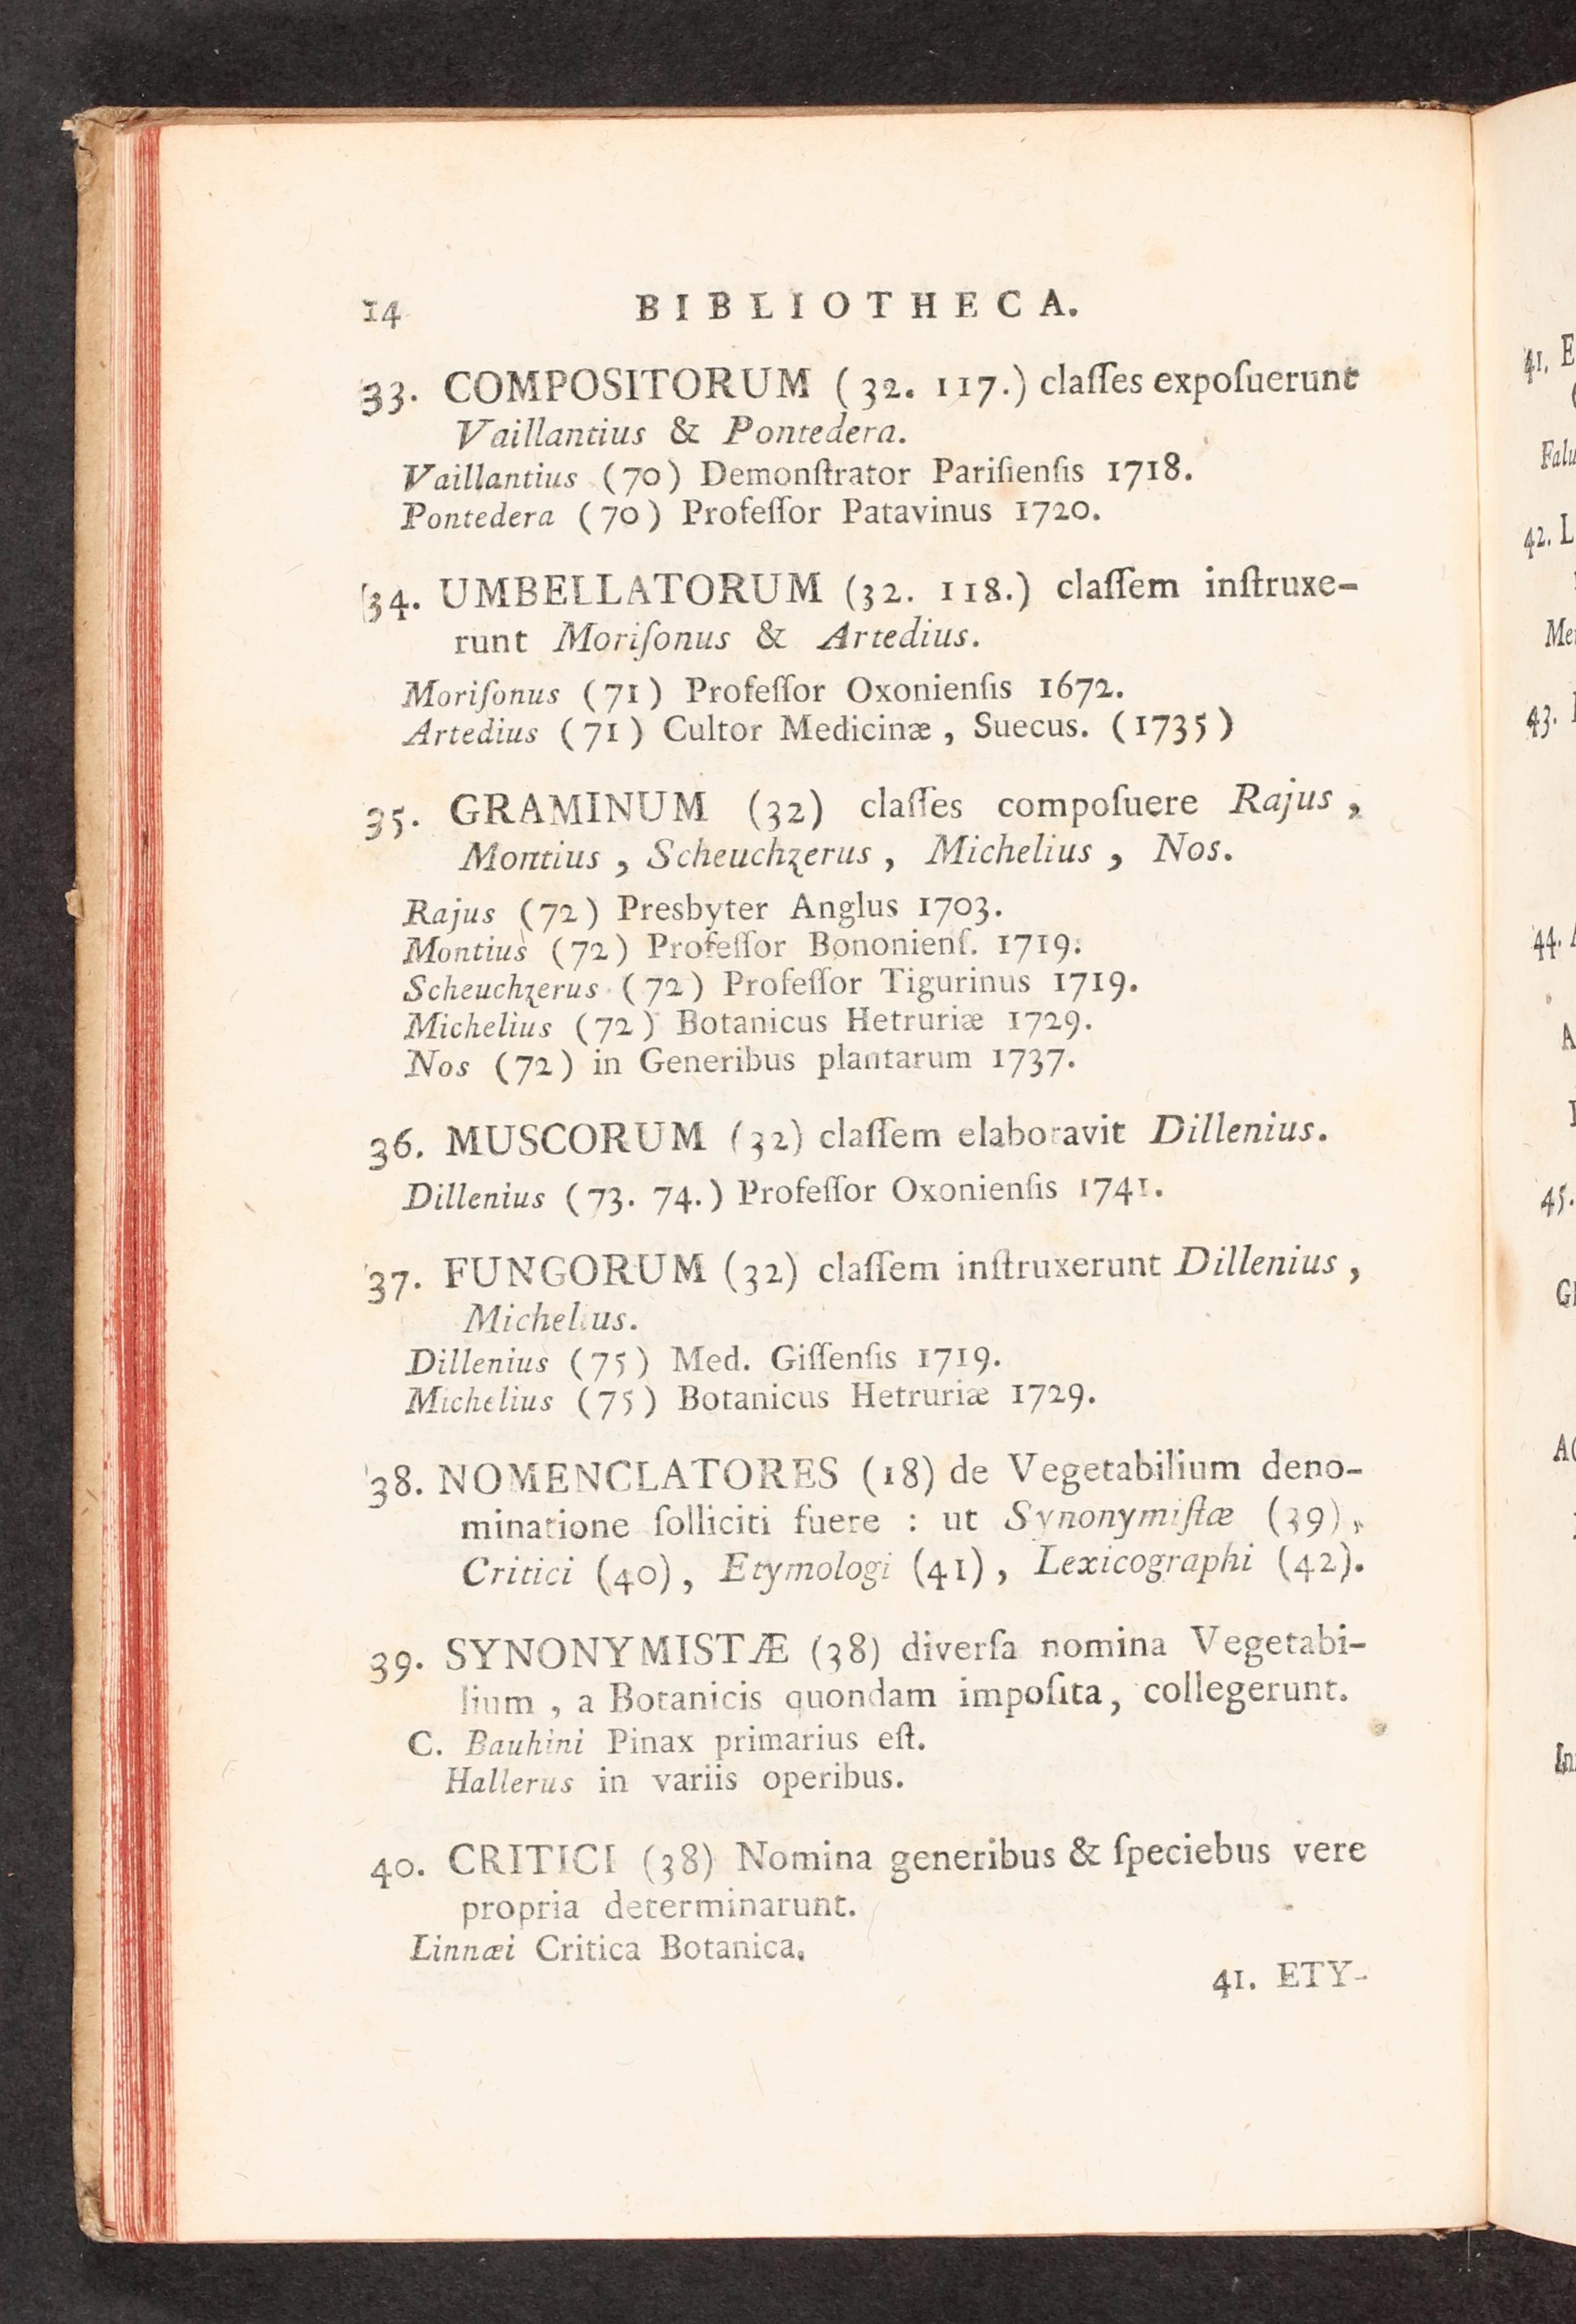 14 BIBLIOTHECA.
33. COMPOSITORUM (32. 117.) claſſes expoſuerunt
Vaillantius & Pontedera.
Vaillantius (70) Demonſtrator Pariſienſis 1718.
Pontedera (70) Profeſſor Patavinus 1720.
34. UMBELLATORUM (32. 118.) claſſem inſtruxe-
runt Moriſonus & Artedius.
Moriſonus (71) Profeſſor Oxonienſis 1672.
Artedius (71) Cultor Medicinæ, Suecus. (1735)
35. GRAMINUM (32) claſſes compoſuere Rajus,
Montius, Scheuchzerus, Michelius, Nos.
Rajus (72) Presbyter Anglus 1703.
Montius (72) Profeſſor Bononienſ. 1719.
Scheuchzerus (72) Profeſſor Tigurinus 1719.
Michelius (72) Botanicus Hetruriæ 1729.
Nos (72) in Generibus plantarum 1737.
36. MUSCORUM (32) claſſem elaboravit Dillenius.
Dillenius (73. 74.) Profeſſor Oxonienſis 1741.
37. FUNGORUM (32) claſſem inſtruxerunt Dillenius,
Michelius.
Dillenius (75) Med. Giſſenſis 1719.
Michelius (75) Botanicus Hetruriæ 1729.
38. NOMENCLATORES (18) de Vegetabilium deno-
minatione ſolliciti fuere : ut Synonymiſtæ (39),
Critici (40), Etymologi (41), Lexicographi (42).
39. SYNONYMISTÆ (38) diverſa nomina Vegetabi-
lium, a Botanicis quondam impoſita, collegerunt.
C. Bauhini Pinax primarius eſt.
Hallerus in variis operibus.
40. CRITICI (38) Nomina generibus & ſpeciebus vere
propria determinarunt.
Linnæi Critica Botanica.
41. ETY-
41. E
42. L
43.
44.
45.